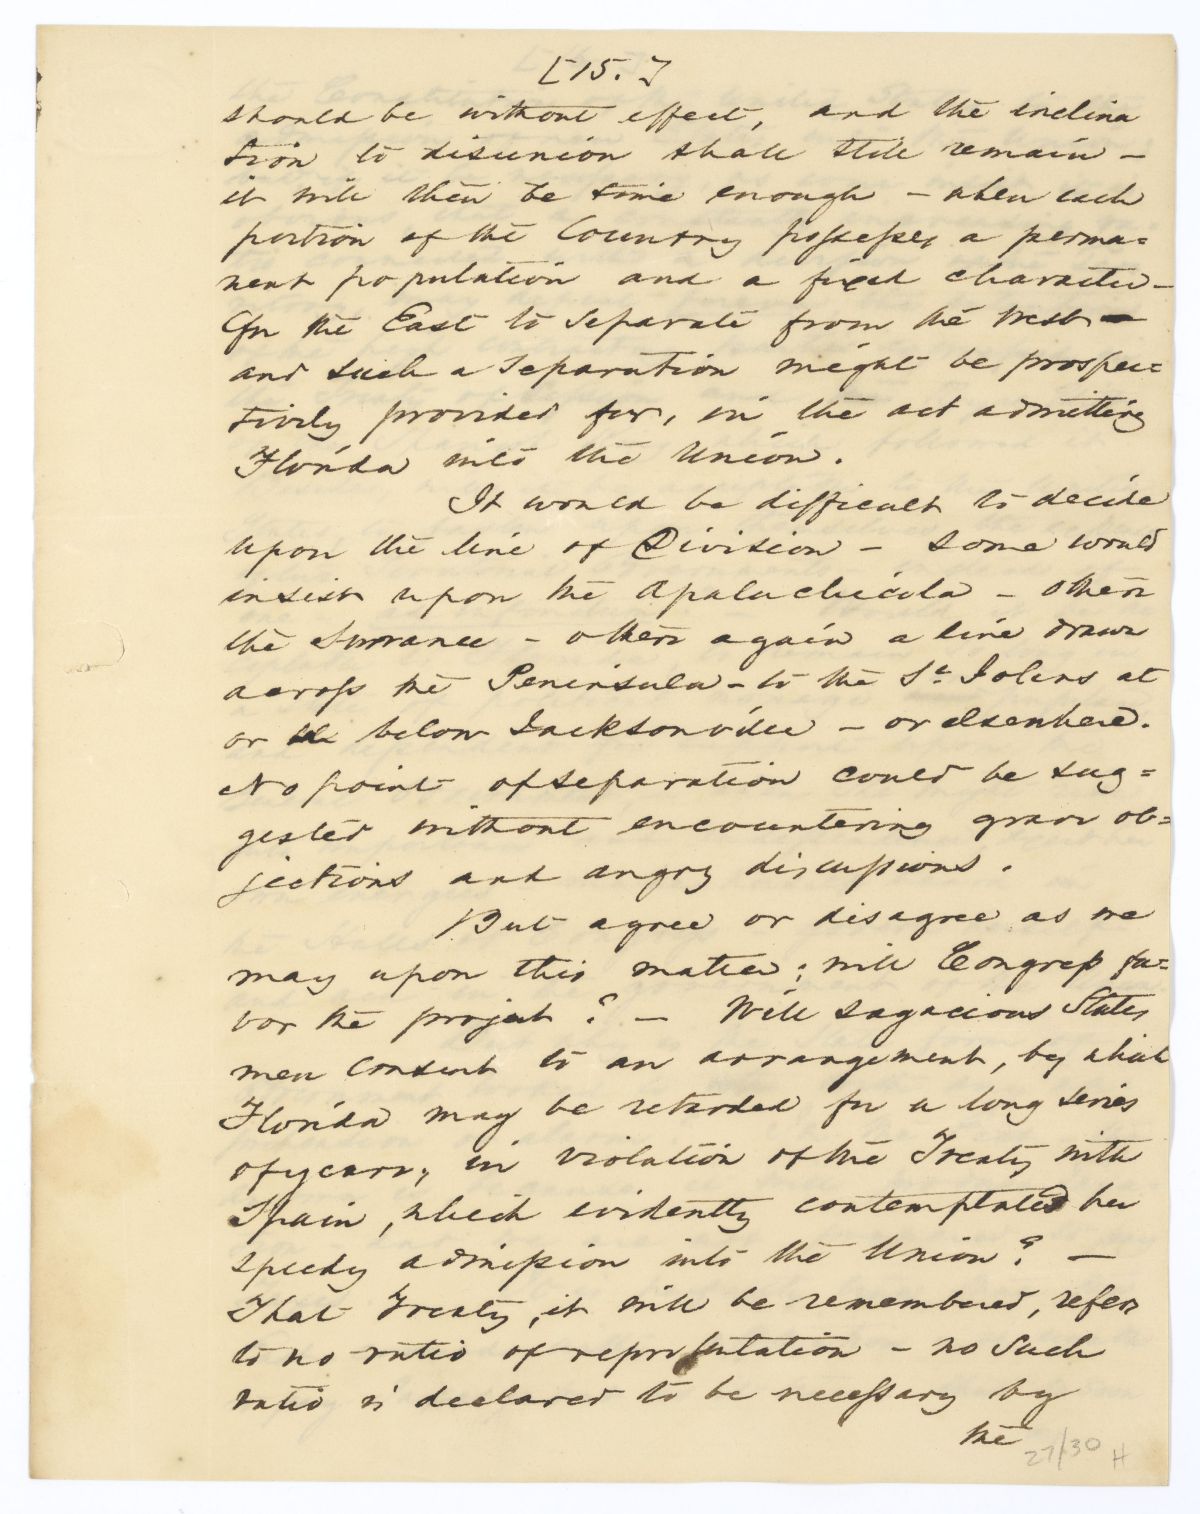 [15.]
should be without effect, and the inclina
tion to disunion shall still remain -
it will then be time enough - when each
portion of the Country possesses a perma=
nent population and a fixed character -
for the East to separate from the West -
and such a separation might be prospec=
tively provided for, in the act admitting
Florida into the Union.
It would be difficult to decide
upon the line of Division - some would
insist upon the Apaluchicola - others
the Suwanee - others again a line drawn
across the Peninsula - to the St. Johns at
or below Jacksonville - or elsewhere.
No point of separation could be sug=
gested without encountering grave ob=
jections and angry discussions.
But agree or disagree as we
may upon this matter; will Congress fa=
vor the project? - Will sagacious States
men consent to an arrangement, by which
Florida may be retarded for a long series
of years, in violation of the Treaty with
Spain, which evidently contemplated her
speedy admission into the Union? -
That Treaty, it will be remembered, refers
to no ratio of representation - no such
ratio is declared to be necessary by
the
27/30 H